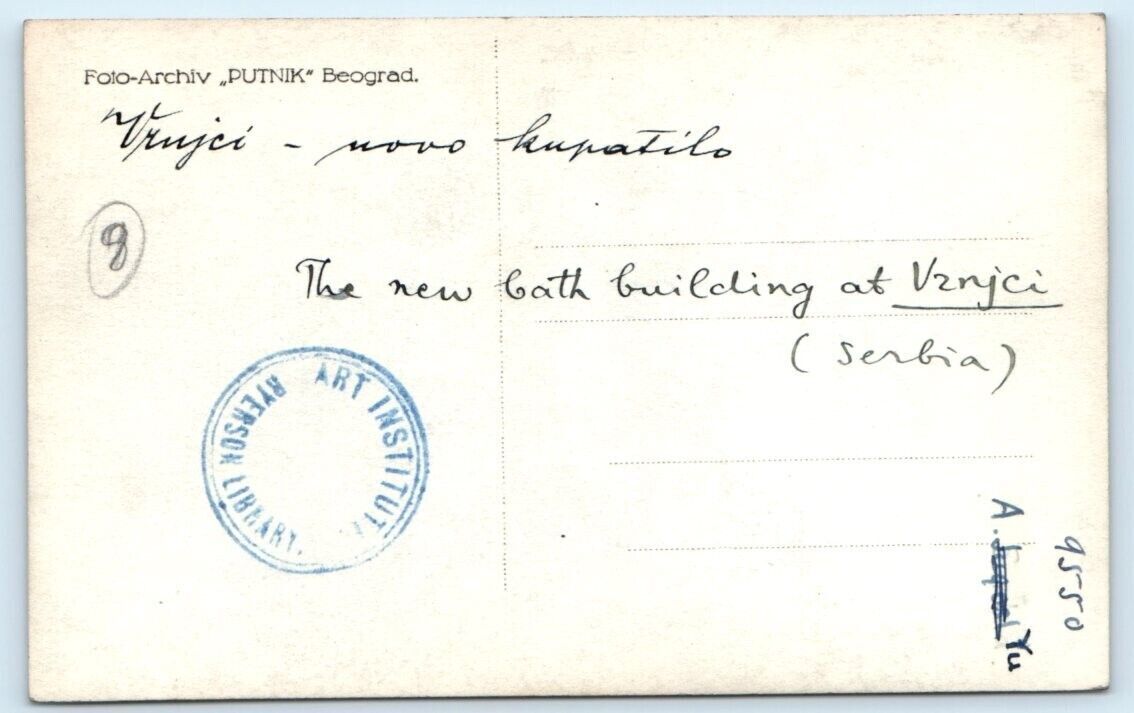 Foto-Archiv „PUTNIK“ Beograd.
Vrnjci - novo kupatilo
8
The new bath building at Vrnjci
(Serbia)
RYERSON LIBRARY.
ART INSTITUT
A.
Yu
9550